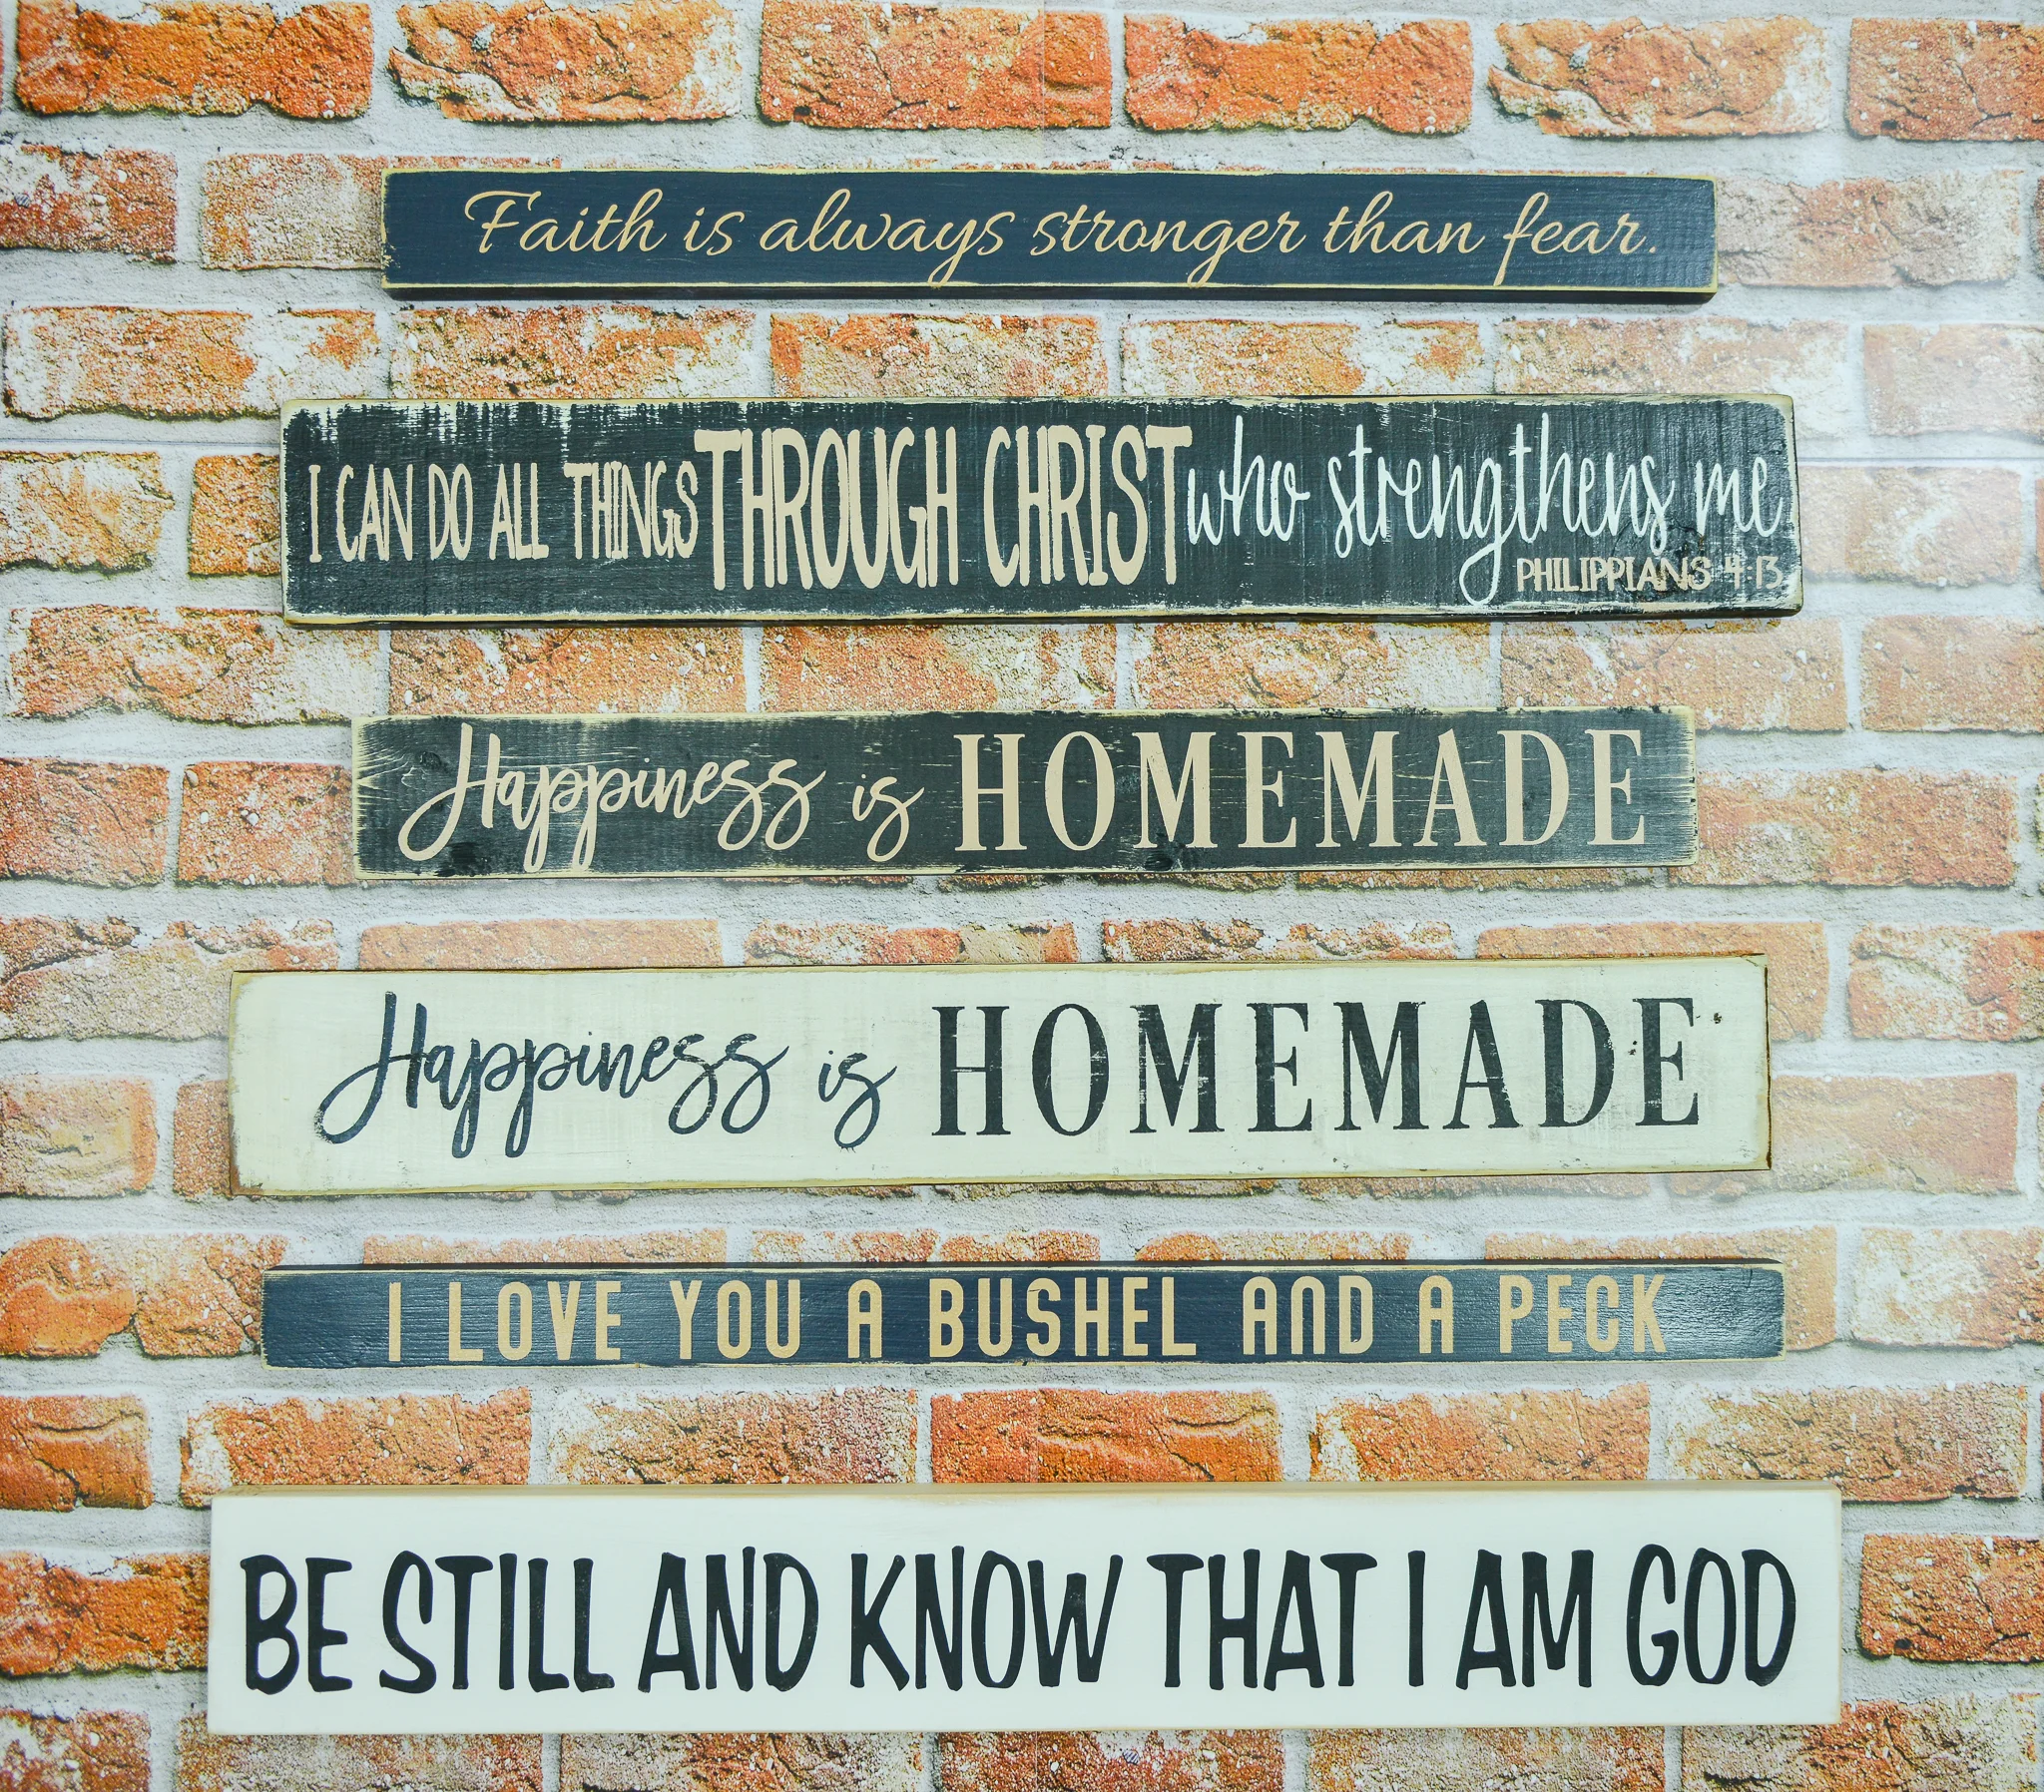 Faith is always stronger than fear.
I CAN DO ALL THINGS THROUGH CHRIST who strengthens me
PHILIPPIANS 4:13
Happiness is HOMEMADE
Happiness is HOMEMADE
I LOVE YOU A BUSHEL AND A PECK
BE STILL AND KNOW THAT I AM GOD